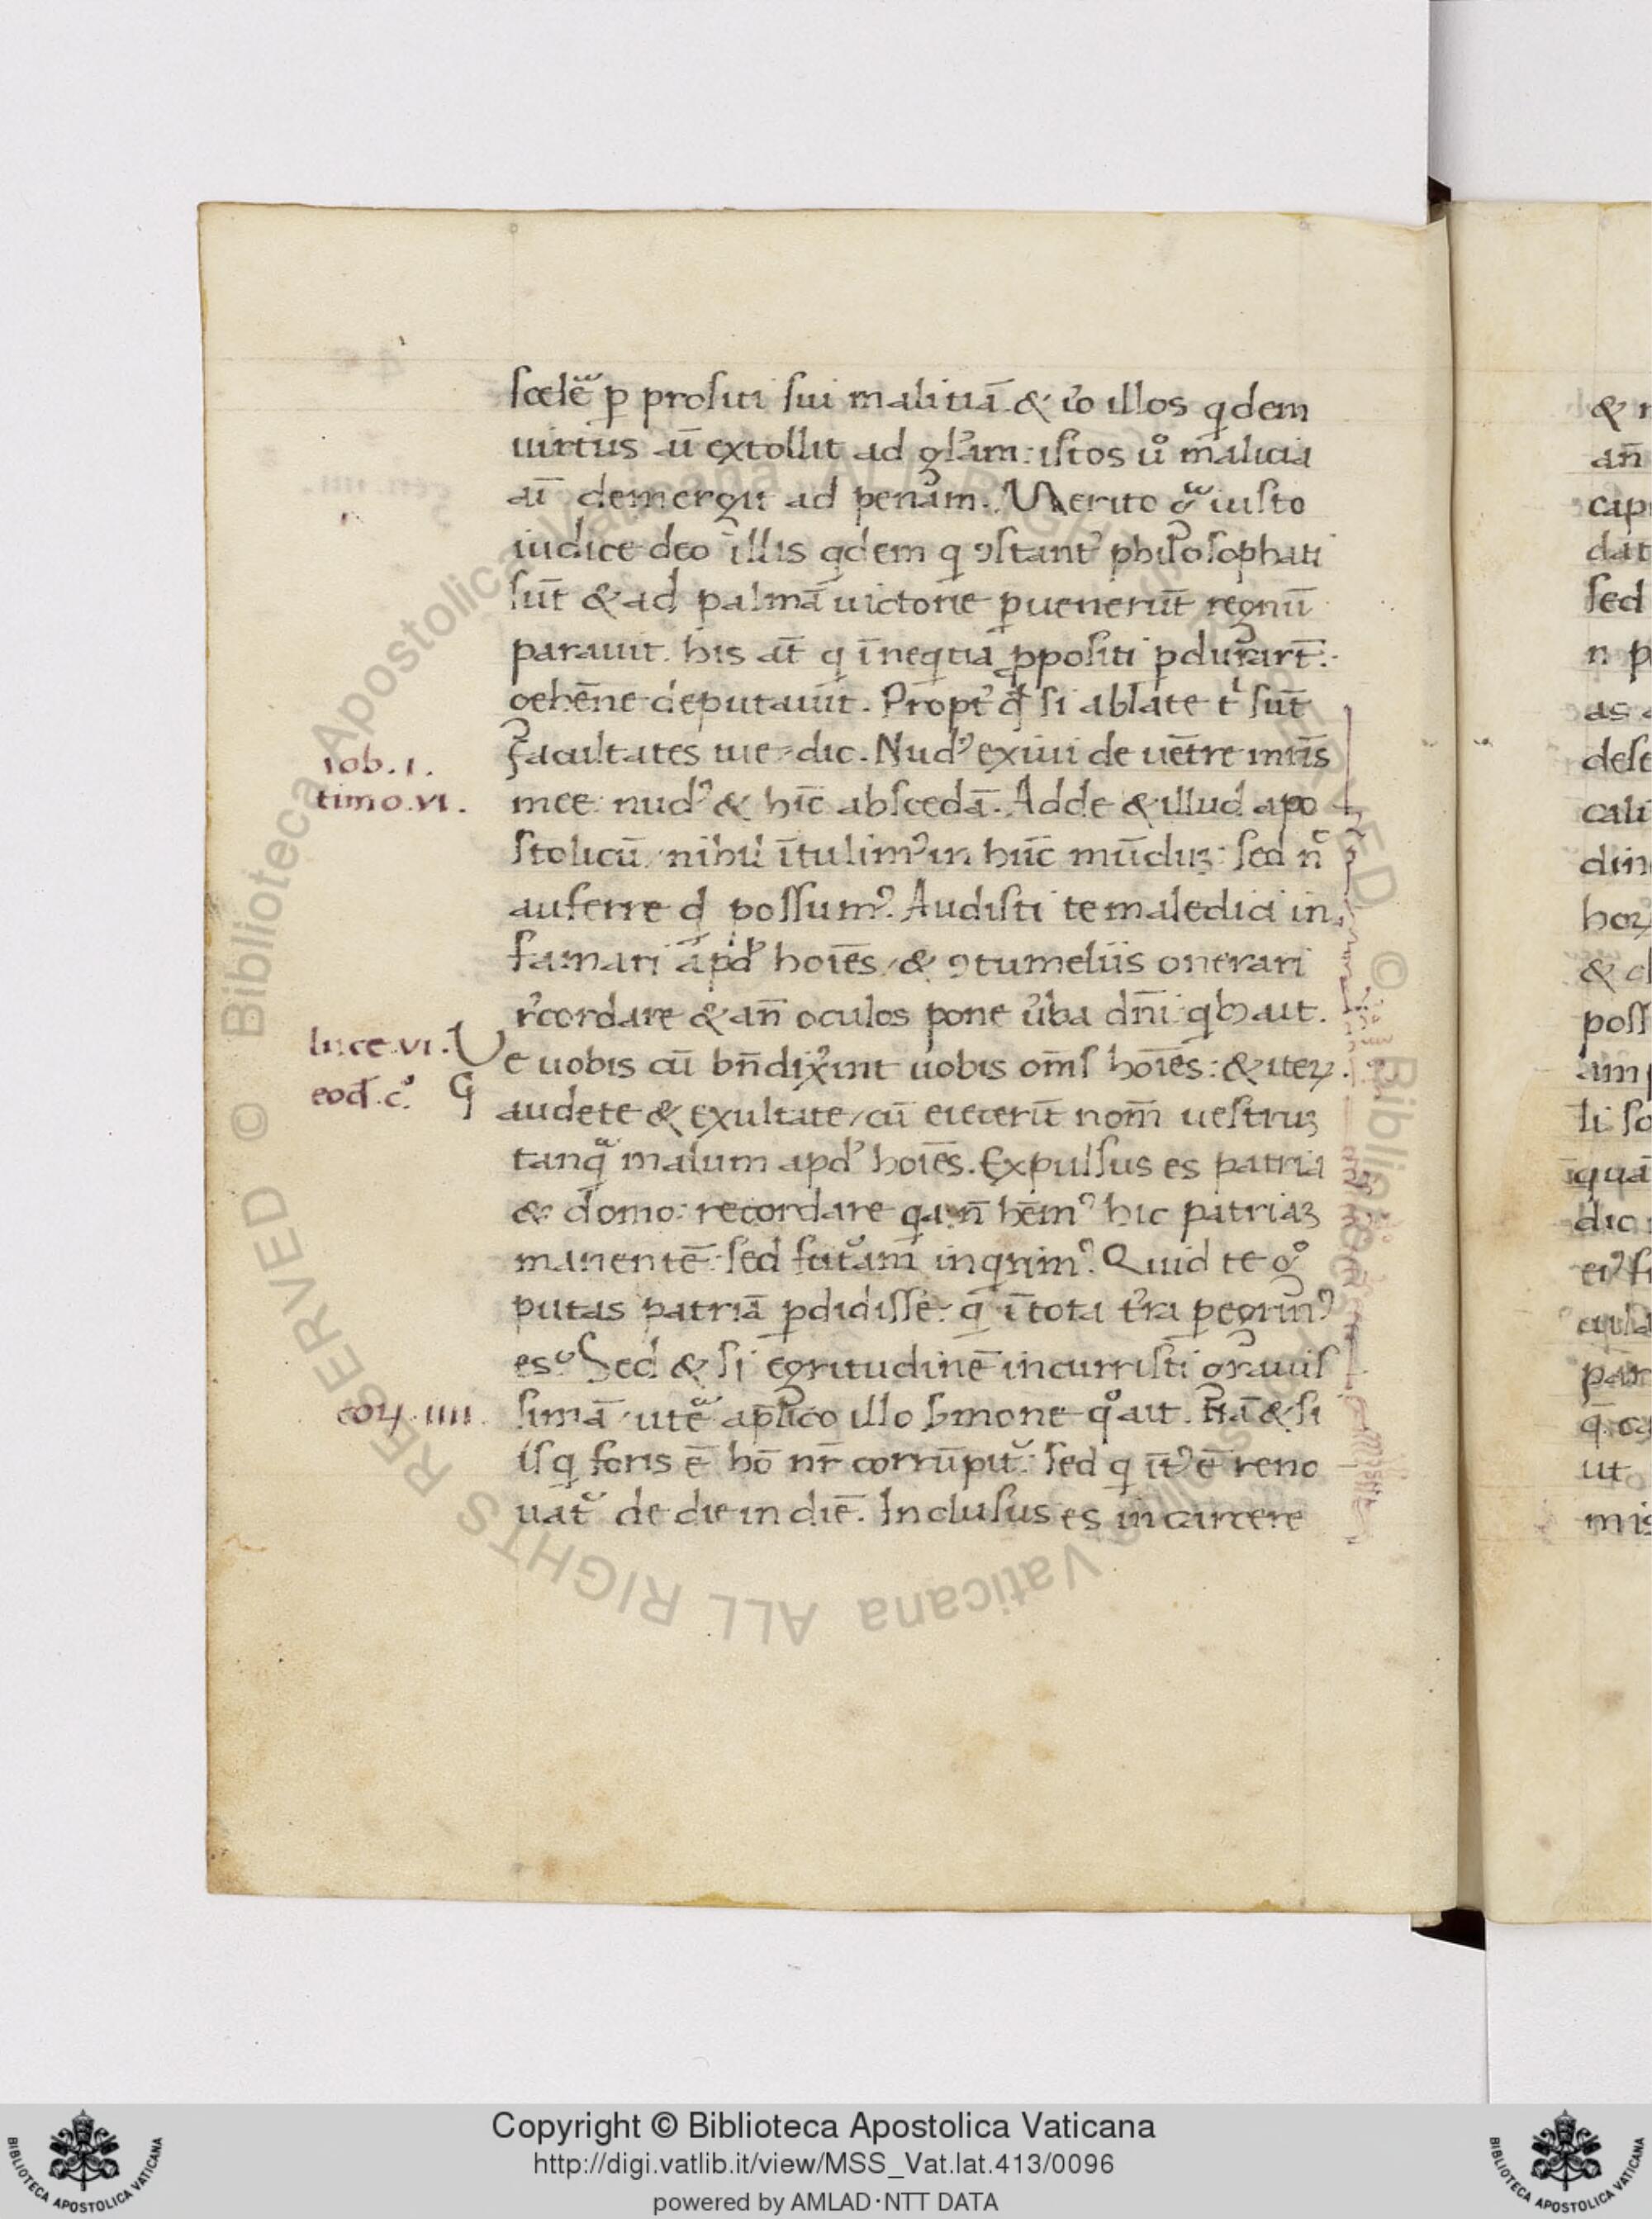 scelẽ p prositi sui malitiā & iõ illos qdem
uirtus aū extollit ad gl'am: istos ů malicia
aī demergit ad penam. Merito g iusto
iudice deo illis qdem q ꝯstant' philosophati
sūt & ad palmā uictorie puenerūt regnū
parauit. his aūt q ī nequitia ppositi pdurarт̄:
gehēne deputauit. Propt' qđ si ablate t' sūt
facultates tue dic. Nud' exiui de uētre mr̄is
mee: nud' & hīc abscedā. Adde & illud apo
stolicū nihil ītulim' in hūc mūduʒ: sed nc
auferre qđ possum'. Audisti te maledici in
famari apđ hoīes & ꝯtumeliis onerari
r'cordare & an̄ oculos pone u'ba dn̄i qb ait.
Ve uobis cū bn̄dix'int uobis om̄s hoīes: & iteꝝ.
Gaudete & exultate cū eiecerīt nom̄ uestruʒ
tanq̃ malum apđ hoīes. Expulsus es patria
& domo: recordare qa n̄ hēm' hic patriaʒ
manentē: sed futuram inqrim'. Quid te g°
putas patriā pdidisse: q ī tota t'ra pegrin'
es. Sed & si egritudinē incurristi grauis
simā utẽ ap̄lico illo s'mone q° ait. Etiā & si
is q foris ē hō nr̄ corrūpit': sed q īt' ē reno
uat' de die in diē. Inclusus es in carcere
iob. i.
timo. vi.
luce. vi.
eođ. c°.
coꝝ. iiii.
Copyright © Biblioteca Apostolica Vaticana
http://digi.vatlib.it/view/MSS_Vat.lat.413/0096
powered by AMLAD·NTT DATA
BIBLIOTECA APOSTOLICA VATICANA
BIBLIOTECA APOSTOLICA VATICANA